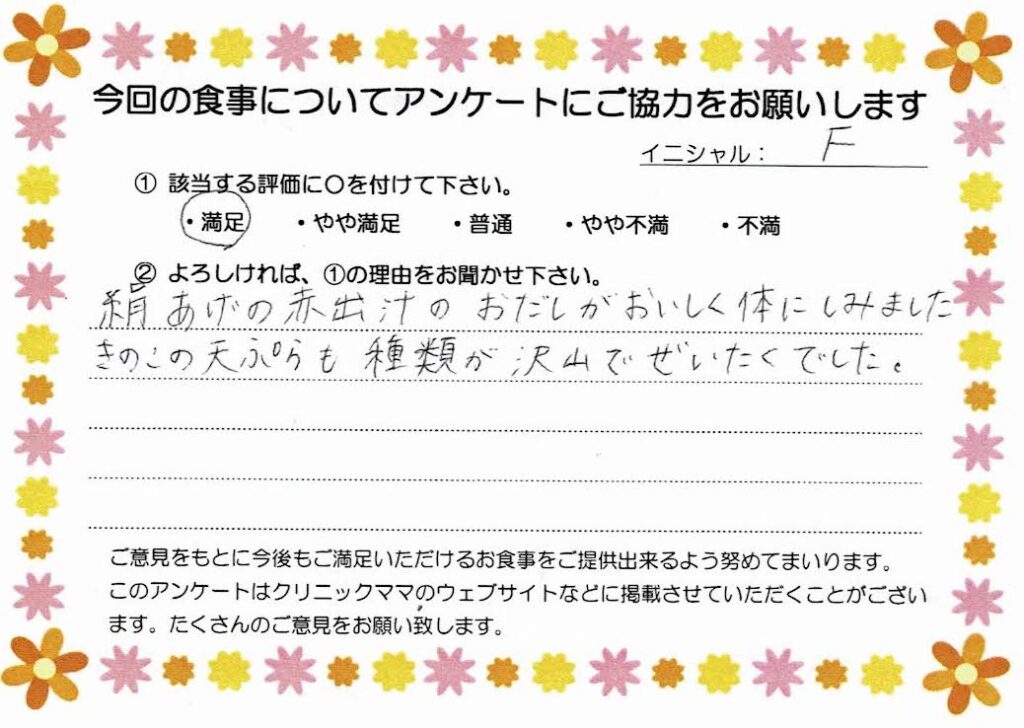 今回の食事についてアンケートにご協力をお願いします
イニシャル： F
① 該当する評価に〇を付けて下さい。
・満足 ・やや満足 ・普通 ・やや不満 ・不満
② よろしければ、①の理由をお聞かせ下さい。
絹あげの赤出汁の おだしがおいしく体にしみました
きのこの天ぷらも 種類が 沢山でぜいたくでした。
ご意見をもとに今後もご満足いただけるお食事をご提供出来るよう努めてまいります。
このアンケートはクリニックママのウェブサイトなどに掲載させていただくことがござい
ます。たくさんのご意見をお願い致します。